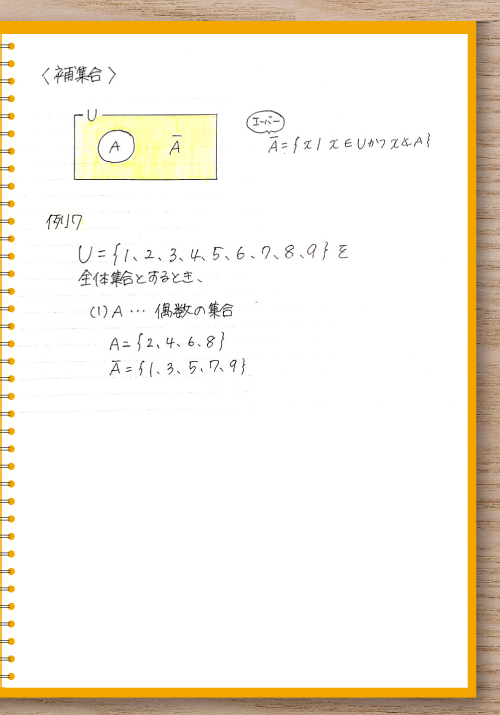 〈補集合〉
U
A
Ā
エーバー
Ā={x | x∈Uかつx∉A}
例17
U={1、2、3、4、5、6、7、8、9}を
全体集合とするとき、
(1) A … 偶数の集合
A={2、4、6、8}
Ā={1、3、5、7、9}